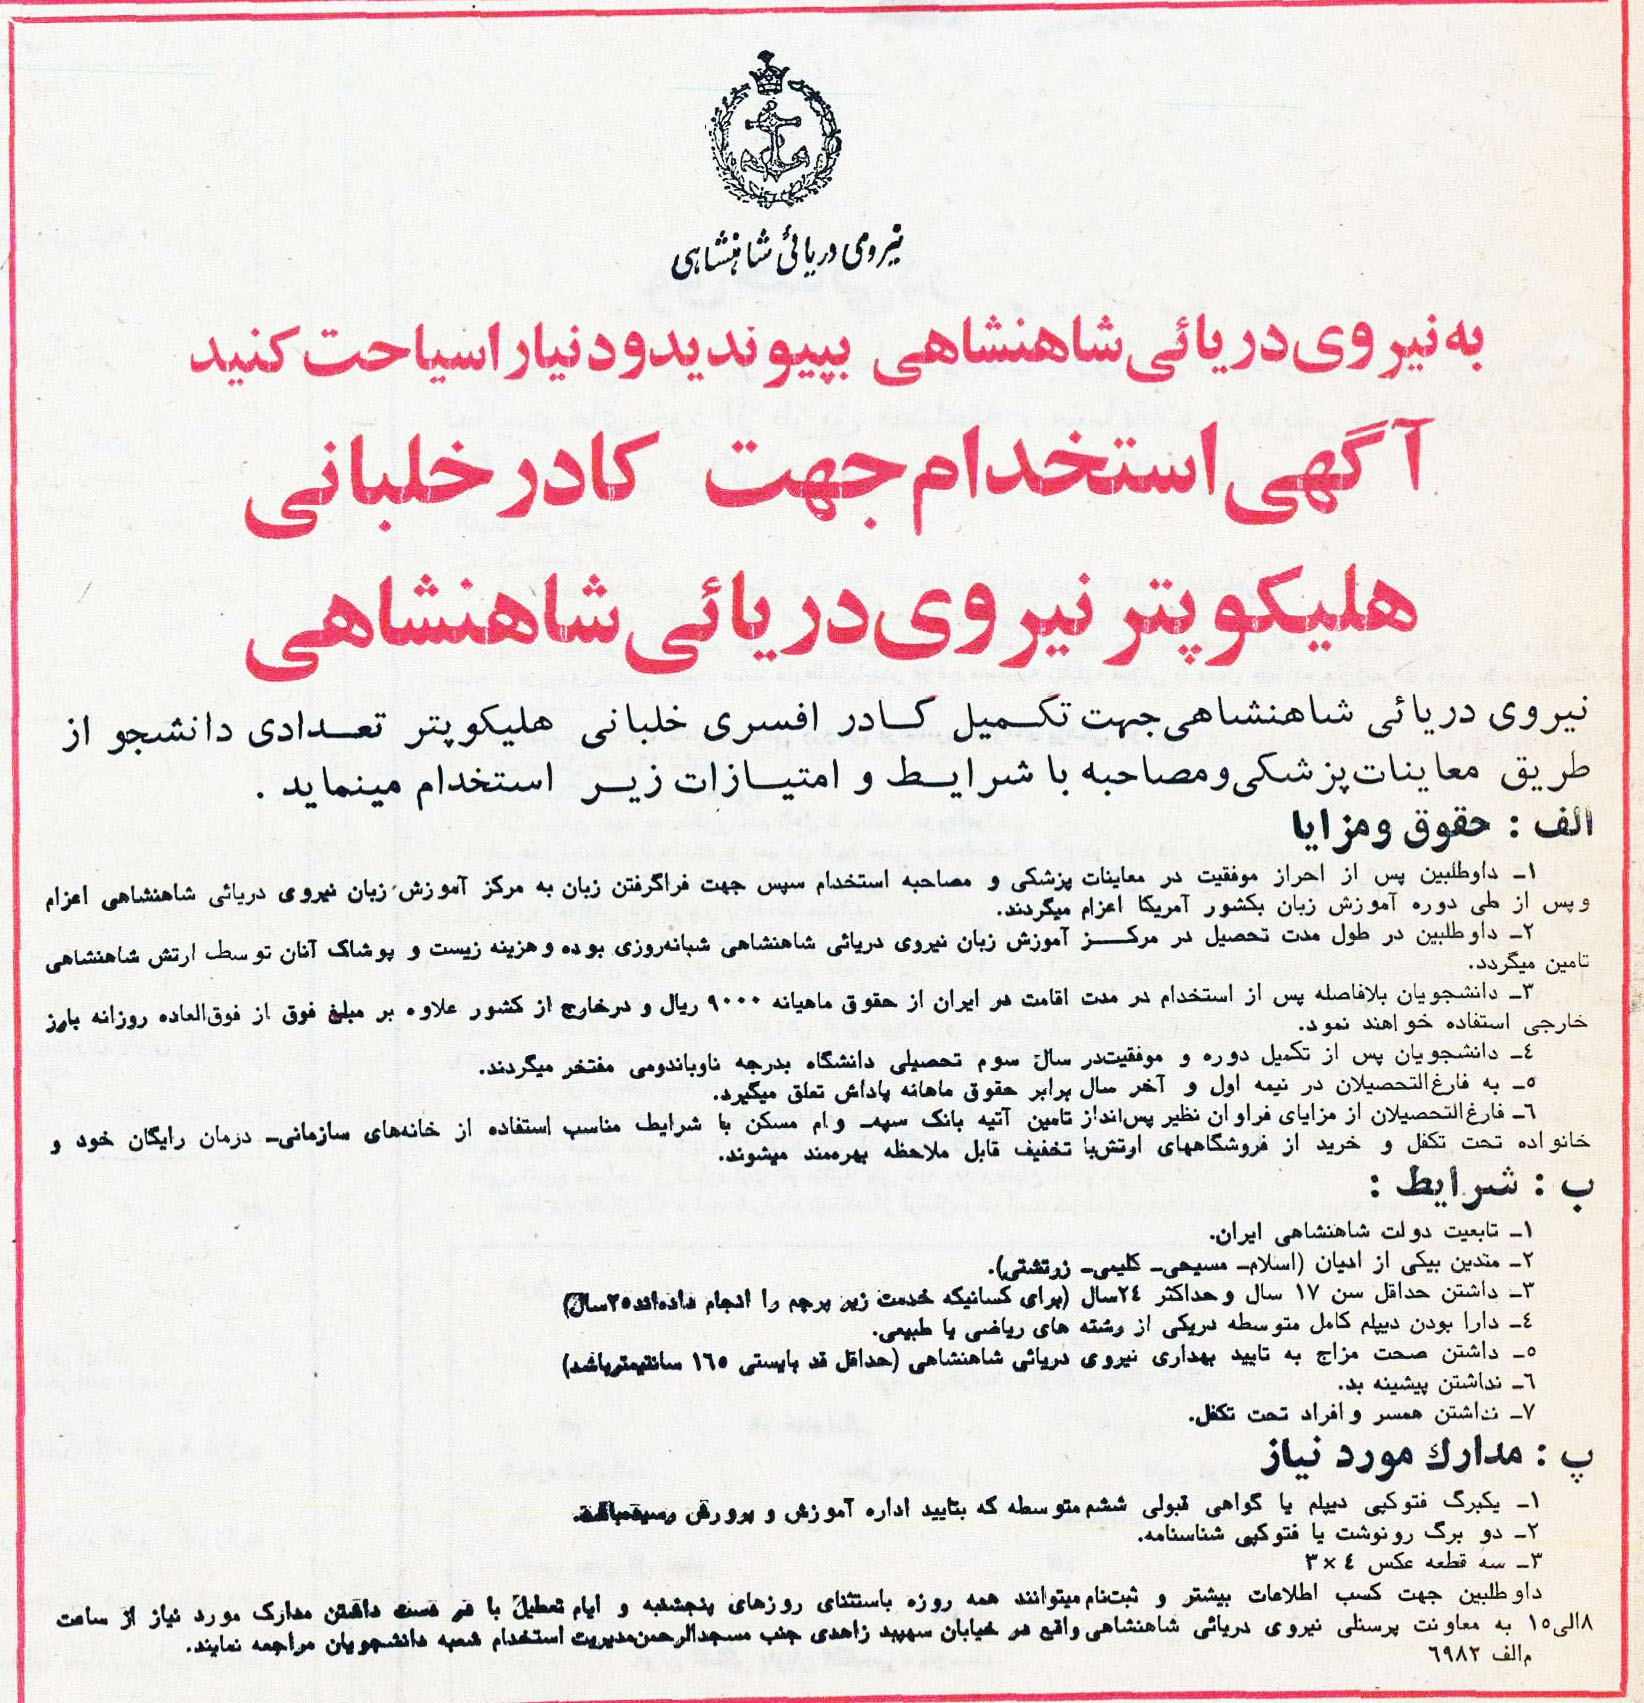 نیروی دریائی شاهنشاهی
به نیروی دریائی شاهنشاهی بپیوندید و دنیا را سیاحت کنید
آگهی استخدام جهت کادر خلبانی
هلیکوپتر نیروی دریائی شاهنشاهی
نیروی دریائی شاهنشاهی جهت تکمیل کادر افسری خلبانی هلیکوپتر تعدادی دانشجو از
طریق معاینات پزشکی و مصاحبه با شرایط و امتیازات زیر استخدام مینماید .
الف : حقوق و مزایا
۱ـ داوطلبین پس از احراز موفقیت در معاینات پزشکی و مصاحبه استخدام سپس جهت فراگرفتن زبان به مرکز آموزش زبان نیروی دریائی شاهنشاهی اعزام
و پس از طی دوره آموزش زبان بکشور آمریکا اعزام میگردند.
۲ـ داوطلبین در طول مدت تحصیل در مرکز آموزش زبان نیروی دریائی شاهنشاهی شبانه‌روزی بوده و هزینه زیست و پوشاک آنان توسط ارتش شاهنشاهی
تامین میگردد.
۳ـ دانشجویان بلافاصله پس از استخدام در مدت اقامت در ایران از حقوق ماهیانه ۹۰۰۰ ریال و درخارج از کشور علاوه بر مبلغ فوق از فوق‌العاده روزانه بارز
خارجی استفاده خواهند نمود.
٤ـ دانشجویان پس از تکمیل دوره و موفقیت‌در سال سوم تحصیلی دانشگاه بدرجه ناوباندومی مفتخر میگردند.
٥ـ به فارغ‌التحصیلان در نیمه اول و آخر سال برابر حقوق ماهانه پاداش تعلق میگیرد.
٦ـ فارغ‌التحصیلان از مزایای فراوان نظیر پس‌انداز تامین آتیه بانک سپه‌ـ وام مسکن با شرایط مناسب استفاده از خانه‌های سازمانی‌ـ درمان رایگان خود و
خانواده تحت تکفل و خرید از فروشگاههای ارتش‌با تخفیف قابل ملاحظه بهره‌مند میشوند.
ب : شرایط :
۱ـ تابعیت دولت شاهنشاهی ایران.
۲ـ متدین بیکی از ادیان (اسلام‌ـ مسیحی‌ـ کلیمی‌ـ زرتشتی).
۳ـ داشتن حداقل سن ۱۷ سال و حداکثر ۲٤سال (برای کسانیکه خدمت زیر پرچم را انجام داده‌اند۲٥سال)
٤ـ دارا بودن دیپلم کامل متوسطه دریکی از رشته های ریاضی یا طبیعی.
٥ـ داشتن صحت مزاج به تایید بهداری نیروی دریائی شاهنشاهی (حداقل قد بایستی ۱٦٥ سانتیمترباشد)
٦ـ نداشتن پیشینه بد.
۷ـ نداشتن همسر و افراد تحت تکفل.
پ : مدارك مورد نیاز
۱ـ یکبرگ فتوکپی دیپلم یا گواهی قبولی ششم متوسطه که بتایید اداره آموزش و پرورش رسیده‌باشد.
۲ـ دو برگ رونوشت یا فتوکپی شناسنامه.
۳ـ سه قطعه عکس ٤ × ۳
داوطلبین جهت کسب اطلاعات بیشتر و ثبت‌نام میتوانند همه روزه باستثنای روزهای پنجشنبه و ایام تعطیل با در دست داشتن مدارک مورد نیاز از ساعت
۸الی۱٥ به معاونت پرسنلی نیروی دریائی شاهنشاهی واقع در خیابان سپهبد زاهدی جنب مسجدالرحمن‌مدیریت استخدام شعبه دانشجویان مراجعه نمایند.
م‌الف ٦۹۸۲